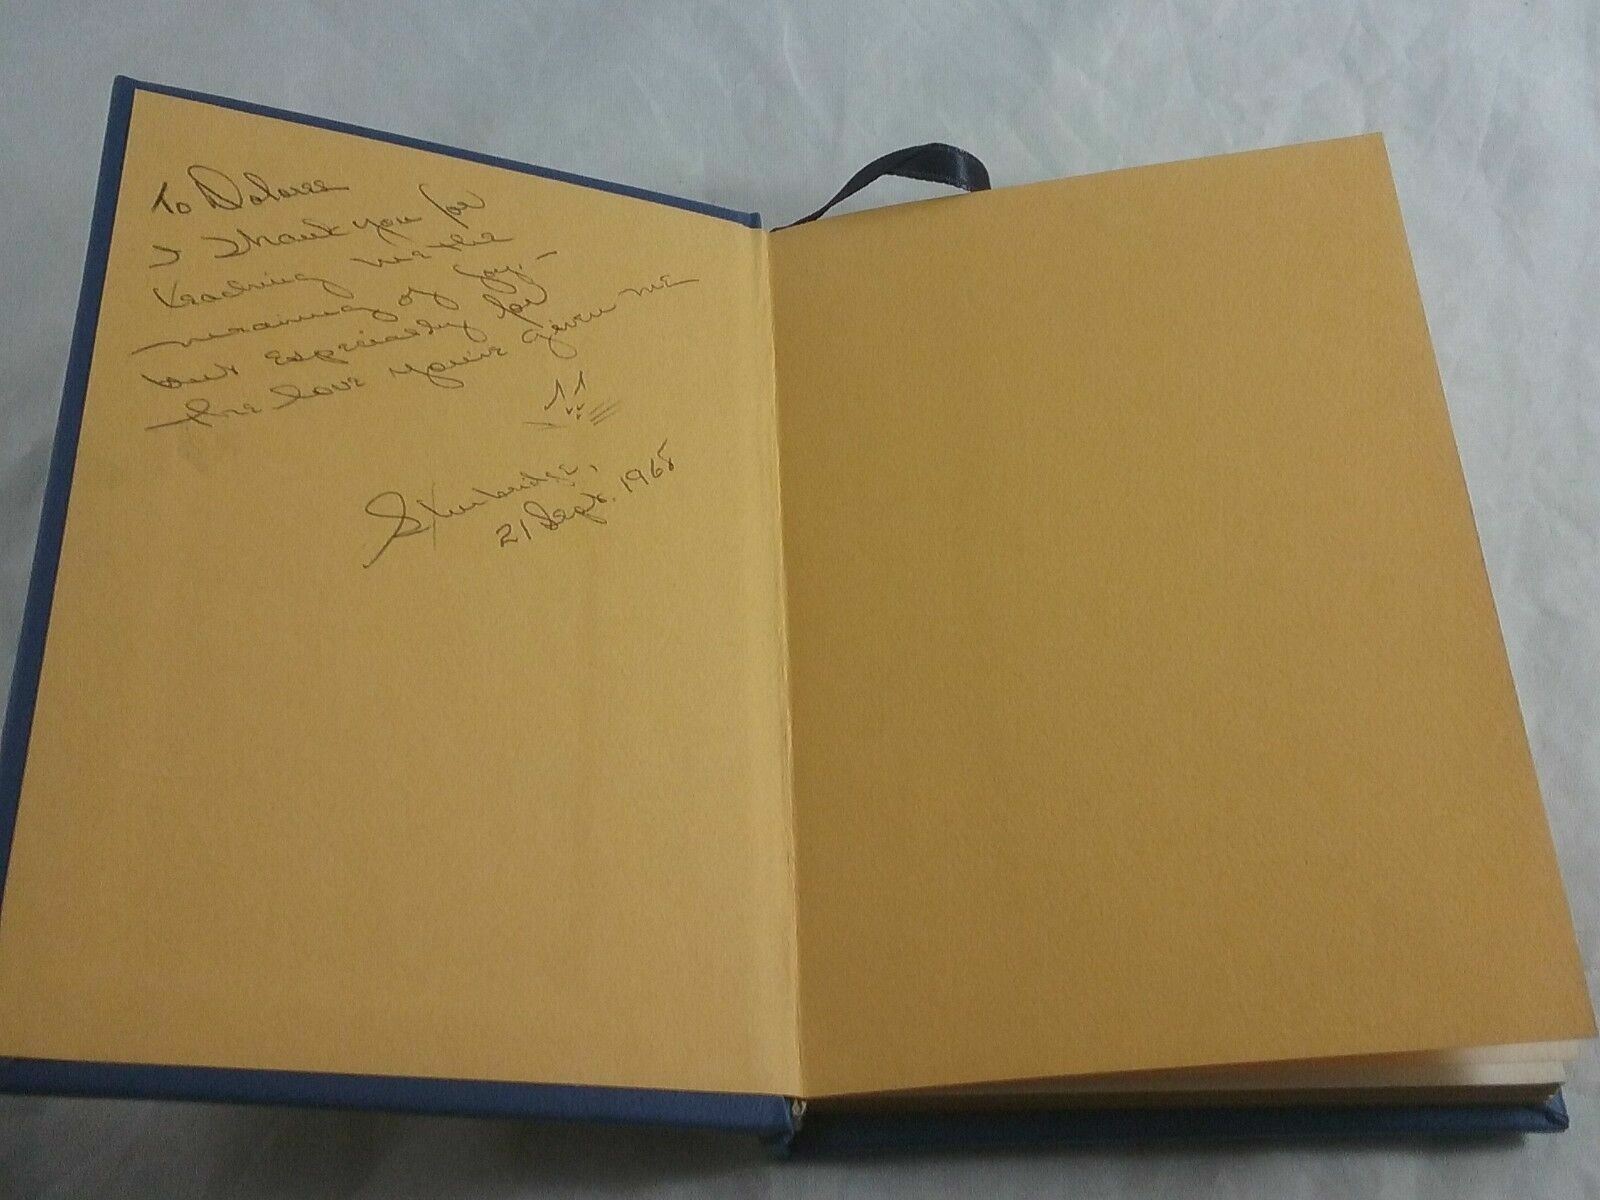 To Dolores
I Thank you for
teaching me the
meaning of joy,—
but especially for
the love you've given me
!!
Sturbridge,
21 Sept. 1968